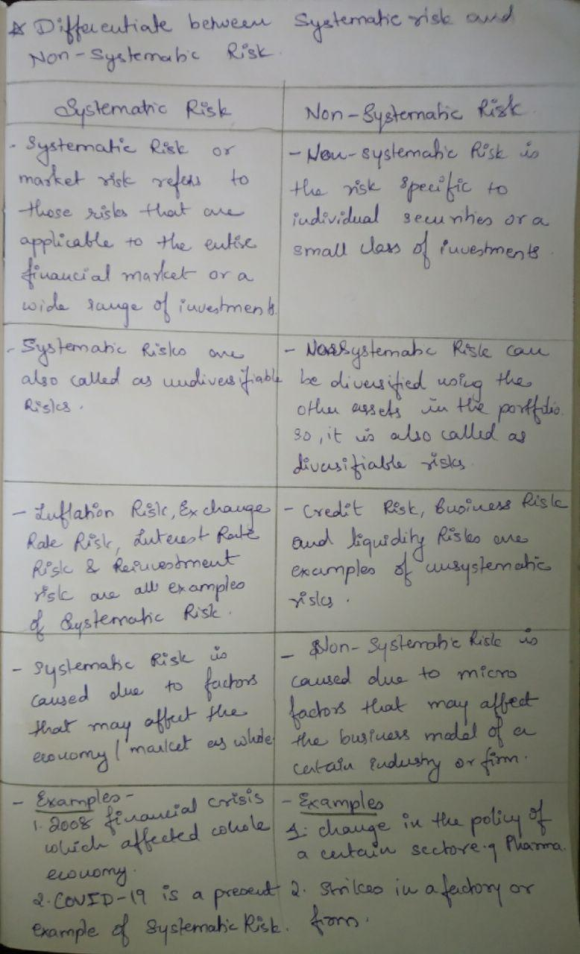 * Differentiate between Systematic risk and
Non-Systematic Risk.
Systematic Risk
Non-Systematic Risk.
- Systematic Risk or
market risk refers to
those risks that are
applicable to the entire
financial market or a
wide range of investments.
- Non-systematic Risk is
the risk specific to
individual securities or a
small class of investments.
- Systematic Risks are
also called as undiversifiable
Risks.
- Non-Systematic Risk can
be diversified using the
other assets in the portfolio.
so, it is also called as
diversifiable risks.
- Inflation Risk, Exchange
Rate Risk, Interest Rate
Risk & Reinvestment
risk are all examples
of Systematic Risk.
- Credit Risk, Business Risk
and liquidity Risks are
examples of unsystematic
risks.
- Systematic Risk is
caused due to factors
that may affect the
economy/market as whole
- Non-Systematic Risk is
caused due to micro
factors that may affect
the business model of a
certain industry or firm.
- Examples-
1. 2008 financial crisis
which affected whole
economy.
2. COVID-19 is a present
example of Systematic Risk.
- Examples
1. change in the policy of
a certain sector e.g Pharma.
2. Strikes in a factory or
firm.